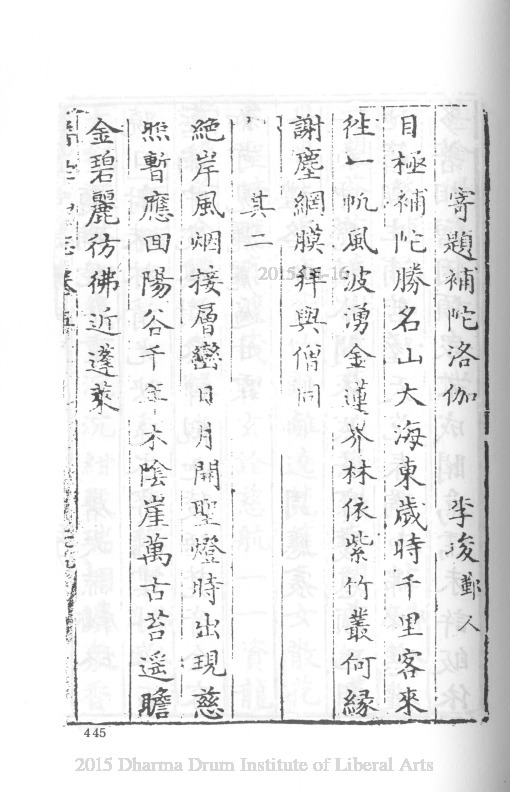 寄題補陀洛伽 李浚鄞人
目極補陀勝名山大海東歲時千里客來
徃一帆風波湧金蓮界林依紫竹叢何縁
謝塵網膜拜與僧同
其二
絶岸風烟接層巒日月開聖燈時出現慈
熈暫應回陽谷千年木陰崖萬古苔遥瞻
金碧麗彷彿近蓬萊
志卷五
445
2015 Dharma Drum Institute of Liberal Arts